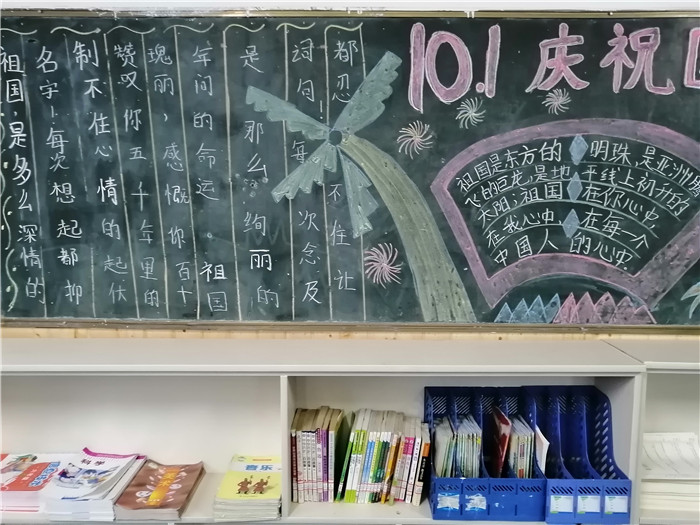 祖国,是多么深情的
名字!每次想起都抑
制不住心情的起伏
赞叹你五千年里的
瑰丽,感慨你百十
年间的命运。祖国
是那么绚丽的
词句,每次念及
都忍不住让
10.1 庆祝
祖国是东方的明珠,是亚洲
飞的巨龙,是地平线上初升的
太阳;祖国在你心中,
在我心中在每一个
中国人的心中.
科学
音乐